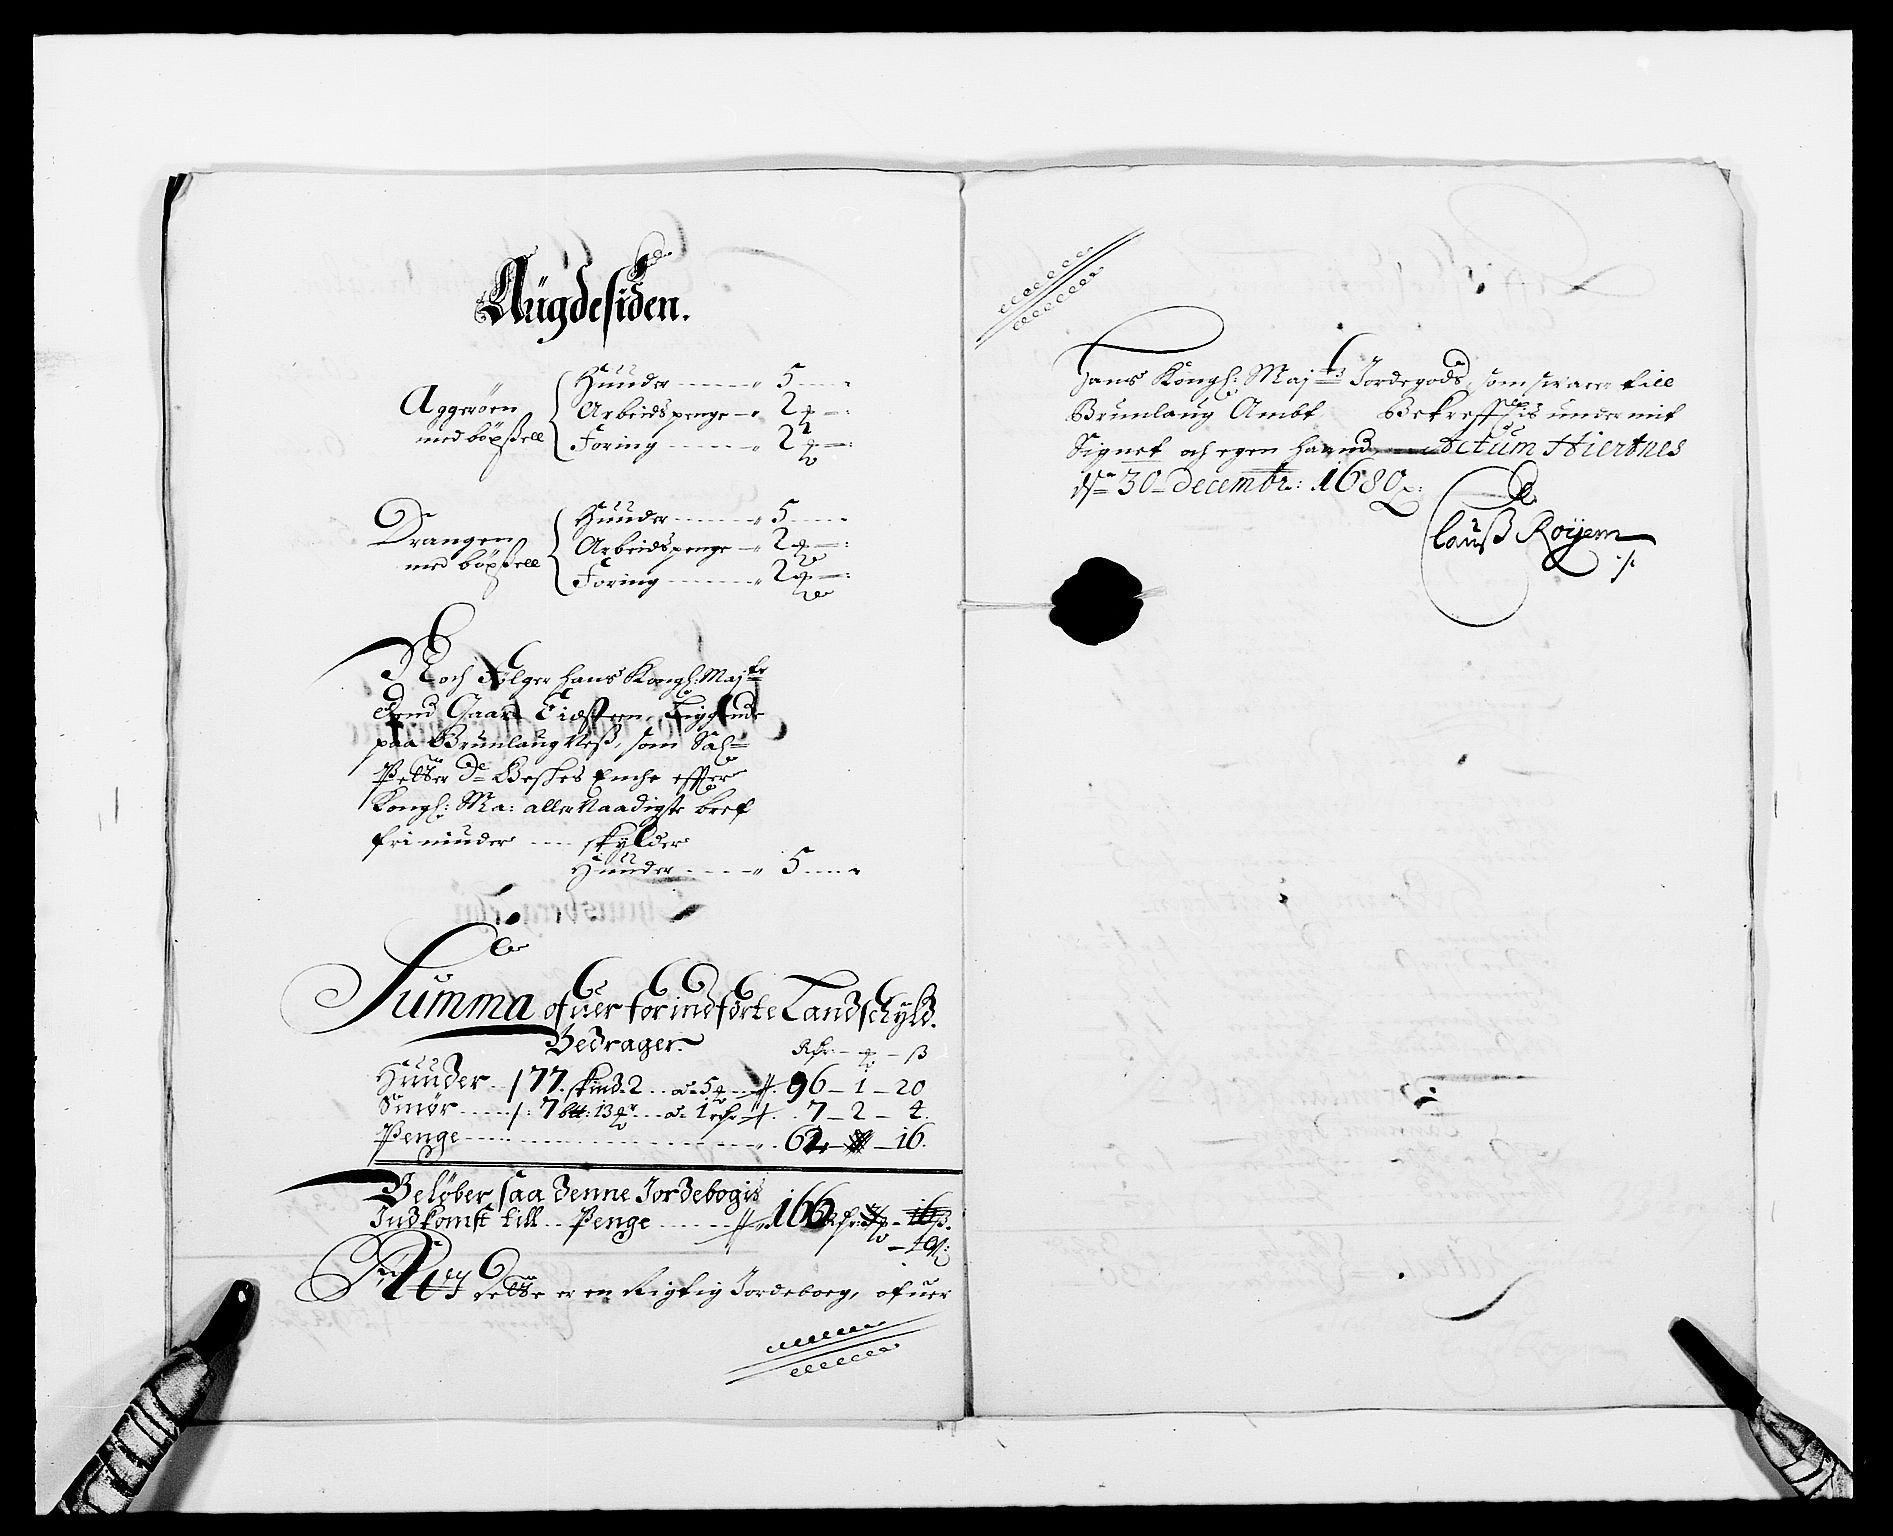 Aügdesiden.
Aggerøen
med böxsell
Huuder 5
Arbeidspenge 2
Foring 2
Drangen
med böxsell
Huuder 5
Arbeidspenge 2
Foring 2
Noch følger hans Kongl: Maj:ts
dend Gaard Eidsteen, liggende
paa Brunlaugness, som Sal:
Petter De Beskes Enche effter
Kongl: Ma: aller Naadigste bref
fri niuder skylder
Huuder 5
Summa ofuer forindførte Landschyld
Bedrager.
Rdr - ß
Huuder 177. skind 2 a 5 96 - 1 - 20
Smør 7 13 a 1 rdr 7 - 2 - 4.
Penge 62 - 16.
Beløber saa denne Jordebogis
Indkomst till Penge 166 Rdr - 16 ß.
Dette er en Rigtig Jordeboeg, ofuer
Hans Kongl: Maj:ts Jordegods, som suarer till
Brunlaug Ambt Bekreffttis under mit
Signet och egen haand Actum Hiertnes
d. 30 decembr: 1680
Clauß Röyem